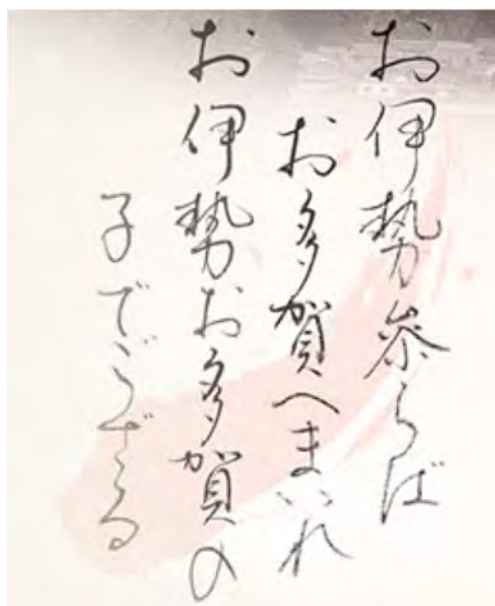 お伊勢参らば
お多賀へまいれ
お伊勢お多賀の
子でござる